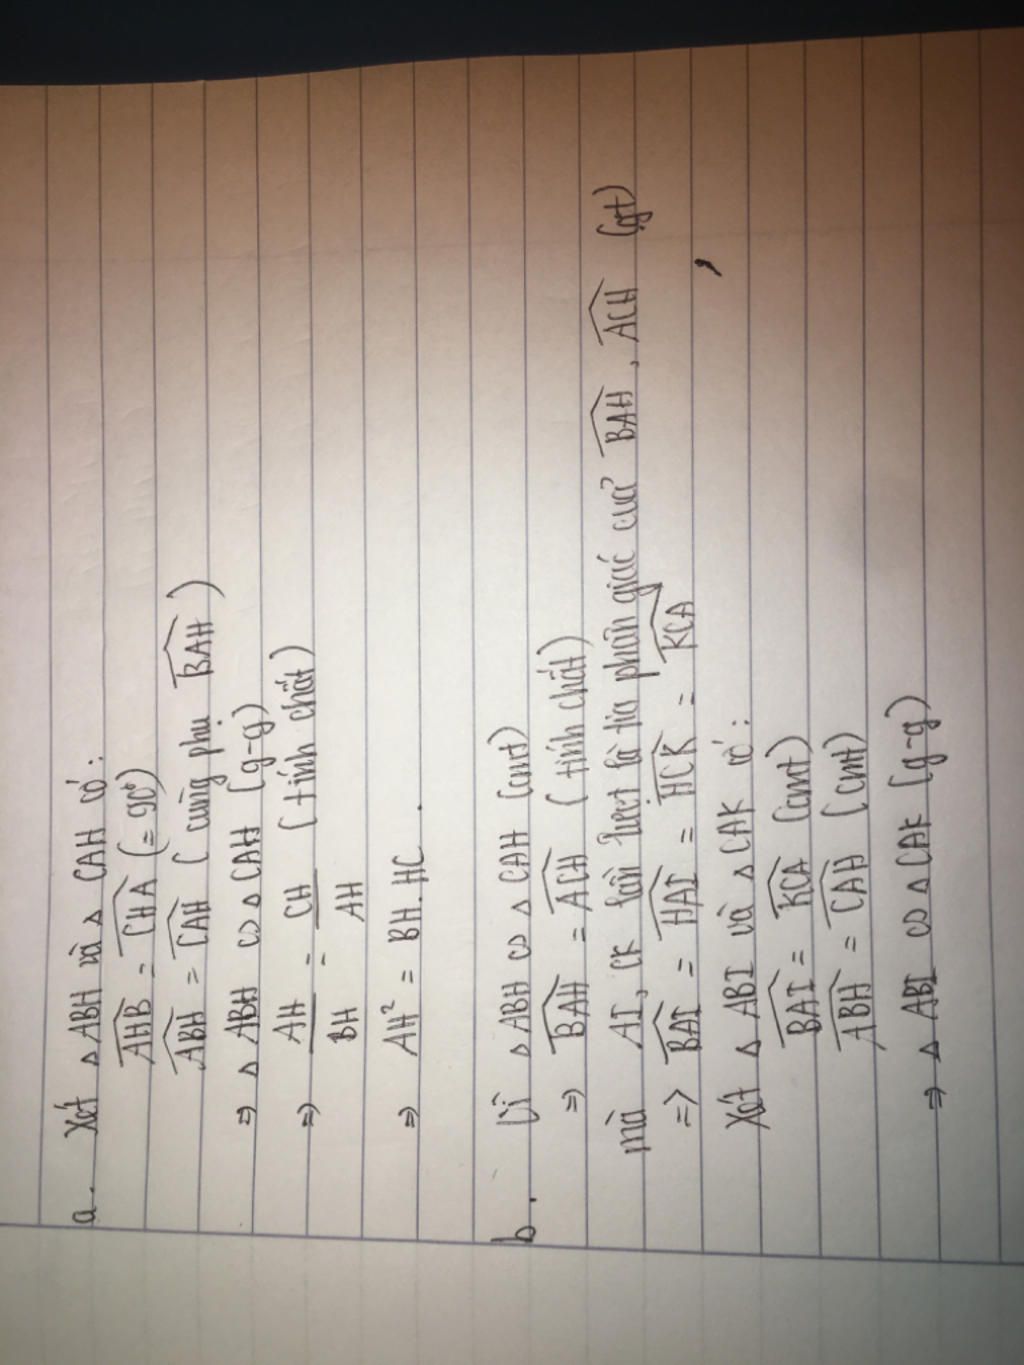 a. Xét △ ABH và △ CAH có:
$\widehat{AHB} = \widehat{CHA}$ (= 90°)
$\widehat{ABH} = \widehat{CAH}$ ( cùng phụ $\widehat{BAH}$ )
⇒ △ ABH ∽ △ CAH (g-g)
⇒ $\frac{AH}{BH} = \frac{CH}{AH}$ ( tính chất )
⇒ AH² = BH . HC .
b. Vì △ ABH ∽ △ CAH (cmt)
⇒ $\widehat{BAH} = \widehat{ACH}$ ( tính chất )
mà AI, CK lần lượt là tia phân giác cuả $\widehat{BAH}$ , $\widehat{ACH}$ (gt)
=> $\widehat{BAI} = \widehat{HAI} = \widehat{HCK} = \widehat{KCA}$
Xét △ ABI và △ CAK có:
$\widehat{BAI} = \widehat{KCA}$ (cmt)
$\widehat{ABH} = \widehat{CAH}$ (cmt)
⇒ △ ABI ∽ △ CAK (g-g)